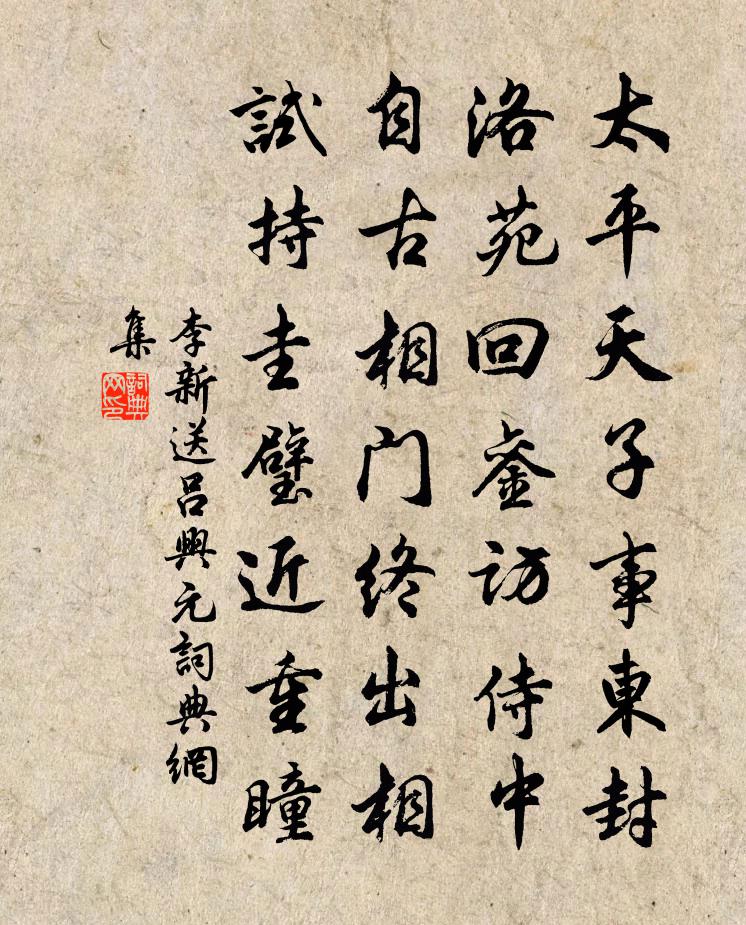 太平天子事東封
洛苑回鑾訪侍中
自古相門終出相
試持圭璧近重瞳
李新送呂興元詞典網
集
詞典
网印